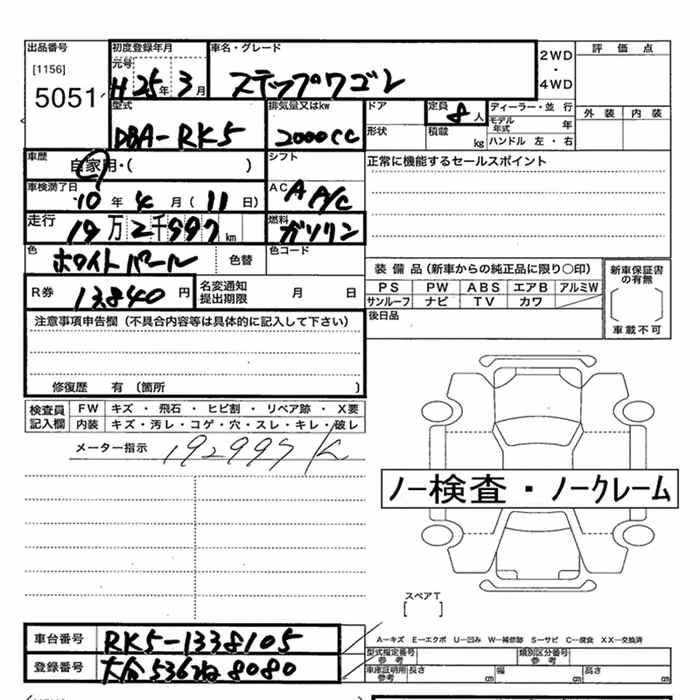 出品番号 初度登録年月 車名・グレード 2WD・4WD 評価点
[1156] 元号
5051 H25年3月 ステップワゴン
型式 排気量又はkw ドア 定員 8人 ディーラー・並行 外装 内装
DBA-RK5 2000cc 形状 積載 kg モデル年式 年
ハンドル 左・右
車歴 自家用・( ) シフト 正常に機能するセールスポイント
車検満了日 10年4月(11日) AC A A/C
走行 19万2千997km 燃料 ガソリン
色 ホワイトパール 色替 色コード
装備品(新車からの純正品に限り〇印) 新車保証書の有無
R券 13840円 名変通知提出期限 月 日 PS PW ABS エアB アルミW
サンルーフ ナビ TV カワ
注意事項申告欄(不具合内容等は具体的に記入して下さい) 後日品 車載不可
修復歴 有(箇所 )
検査員記入欄 FW キズ・飛石・ヒビ割・リペア跡・X要
内装 キズ・汚レ・コゲ・穴・スレ・キレ・破レ
メーター指示 192997K
ノー検査・ノークレーム
スペアT
[ ]
A-キズ E-エクボ U-凹み W-補修跡 S-サビ C-腐食 XX-交換済
車台番号 RK5-1338105 型式指定番号 参考 類別区分番号 参考
登録番号 大分536ね8080 車庫証明用参考 長さ cm 幅 cm 高さ cm